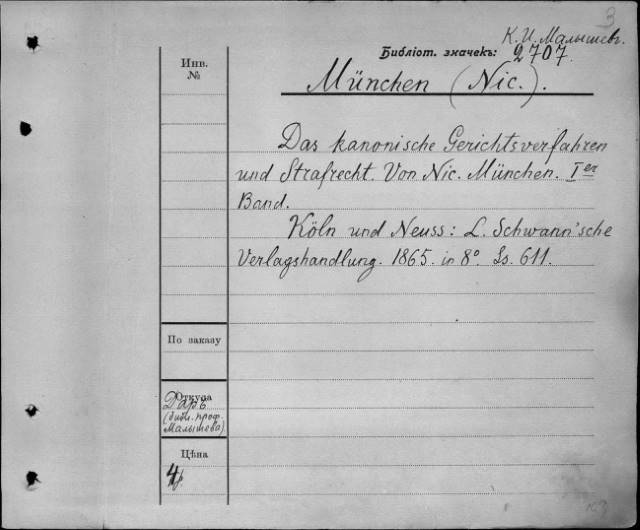 К. И. Малышевъ.
Библіот. значекъ: 2707.
München (Nic.).
Инв.
№
Das kanonische Gerichtsverfahren
und Strafrecht. Von Nic. München. Ier
Band.
Köln und Neuss: L. Schwann'sche
Verlagshandlung. 1865. in 8º. Ss. 611.
По заказу
Откуда
Даръ
(библ. проф.
Малышева)
Цѣна
4р